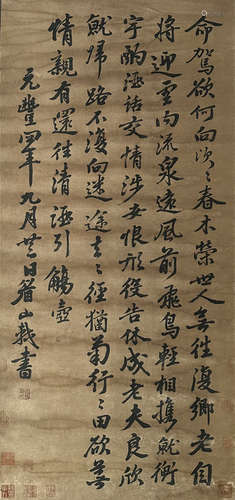 命駕欲何向欣々春木榮世人無往復鄉老自
將迎雲內流泉遠風前飛鳥輕相攜就衡
宇酌酒話交情涉世恨形役告休成老夫良欣
就歸路不復向迷途去々徑猶菊行々田欲蕪
情親有還往清酒引觴壺
元豐四年九月廿二日眉山軾書